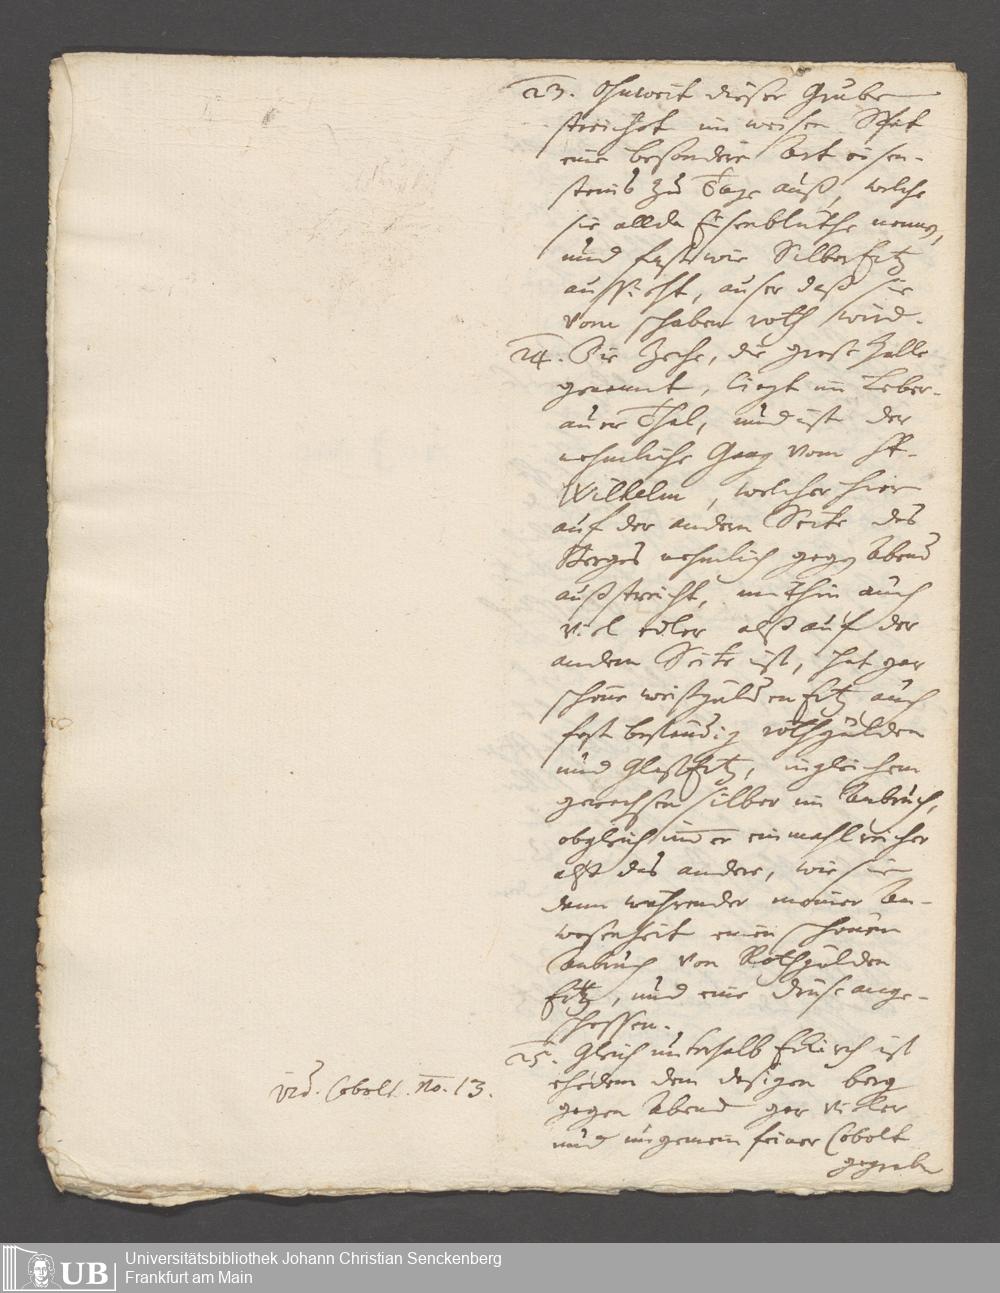 23. Ohnweit dieser Grube
streichet im weisen Spat
eine besondere Art eisen-
steins zu Tage auß, welche
sie allda Eisenblüthe nennen,
und fast wie Silber Ertz
aussieht, auser daß sie
vom schaben roth wird.
24. Die Zeche, die große Halle
genannt, liegt im Leber-
auer Thal, und ist der
nehmliche Gang vom St.
Wilhelm, welcher hier
auf der andern Seite des
Berges nehmlich gegen Abend
außstreicht, mithin auch
viel edler alß auf der
andern Seite ist, hat gar
schöne weißgülden Ertz auch
fast beständig rothgülden
und Glaß Ertz, ingleichem
gewachsen silber im Anbruch,
obgleich immer einmahl reicher
alß das andere, wie sie
dann währender meiner An-
wesenheit einen schönen
Anbruch von Rothgülden
Ertz, und eine Druse ange-
schossen.
25. Gleich unterhalb Eckirch ist
ehedem dem dasigen berg
gegen Abend gar vieler
und ungemein feiner Cobolt
gegraben
vid. Cobolt. No. 13.
UB
Universitätsbibliothek Johann Christian Senckenberg
Frankfurt am Main